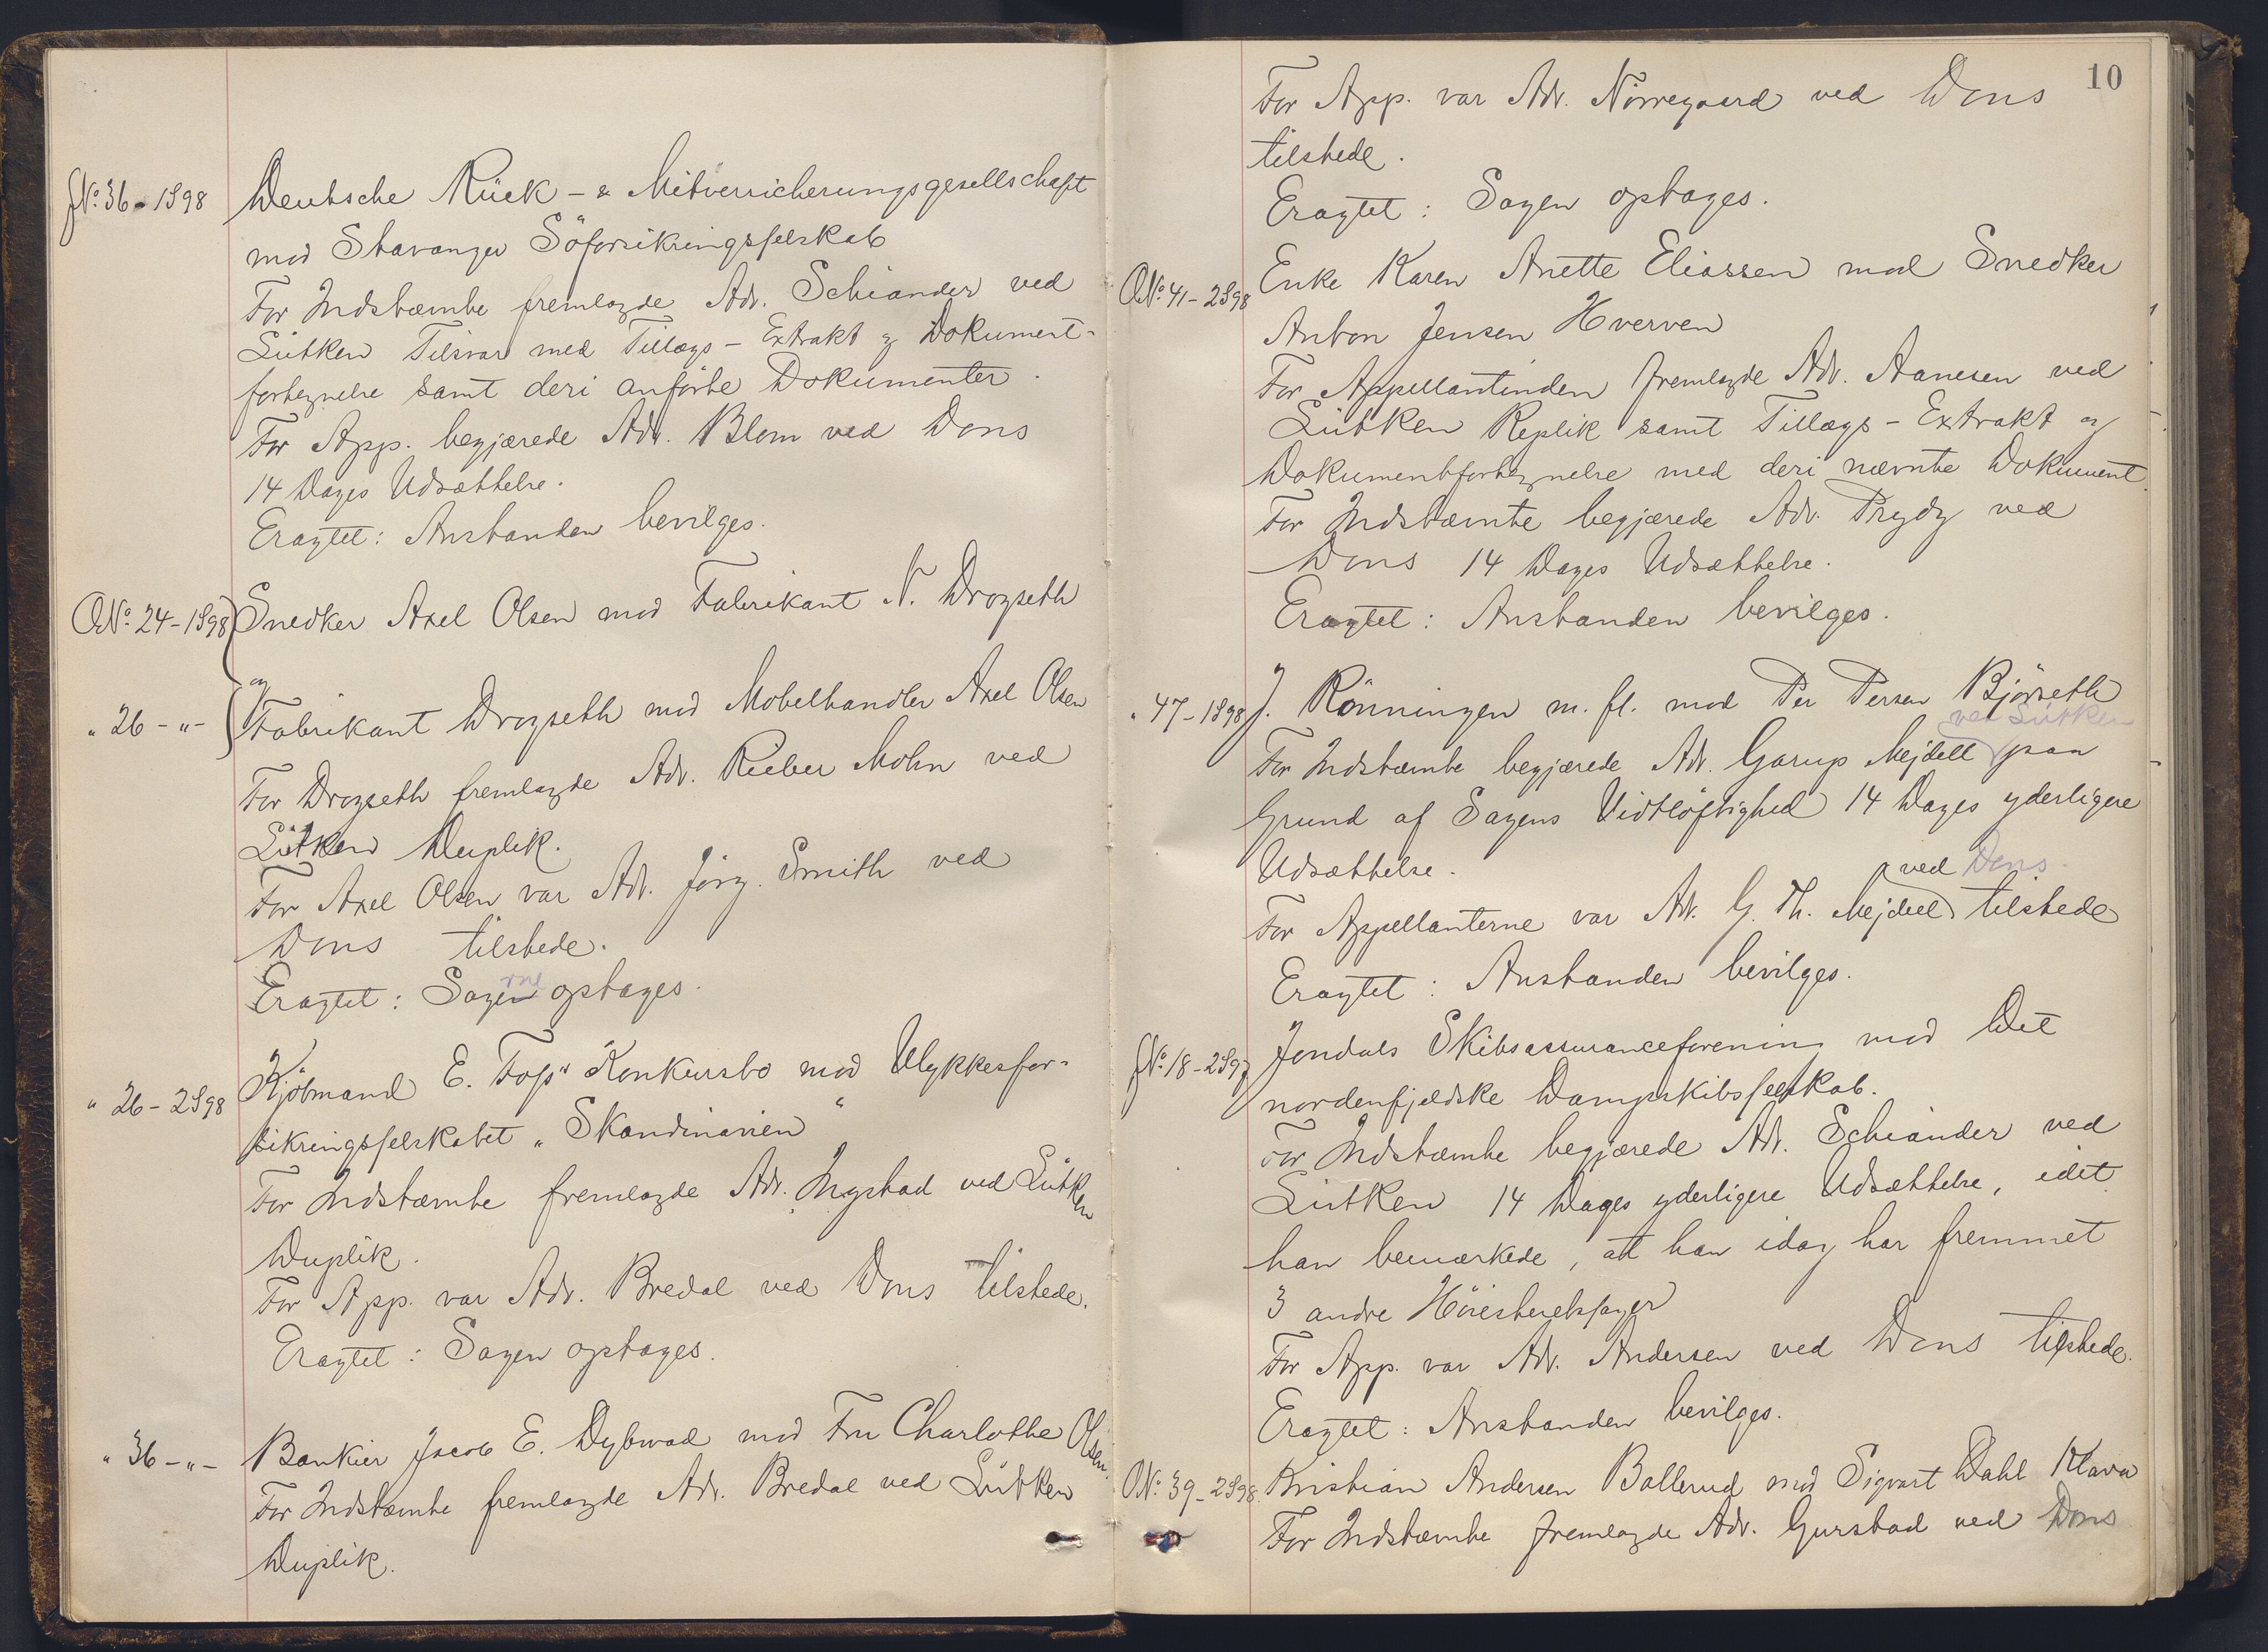 fN: 36-1S98 Deutsche Rück- & Mitversicherungsgesellschaft
mod Stavanger Söforsikringsselskab
For Indstævnte fremlagde Adv. Schiander ved
Lütken Tilsvar med Tillægs-Extrakt og Dokument-
fortegnelse samt deri anførte Dokumenter.
For App. begjærede Adv. Blom ved Dons
14 Dages Udsættelse.
Eragtet: Anstanden bevilges.
ON: 24-1S98 Snedker Axel Olsen mod Fabrikant N. Drogseth
og
" 26-"- Fabrikant Drogseth mod Møbelhandler Axel Olsen
For Drogseth fremlagde Adv. Rieber Mohn ved
Lütken Duplik.
For Axel Olsen var Adv. Jörg. Smith ved
Dons tilstede.
Eragtet: Sagerne optages.
" 26-2S98 Kjöbmand E. Foss' Konkursbo mod Ulykkesfor-
sikringsselskabet "Skandinavien"
For Indstævnte fremlagde Adv. Ingstad ved Lütken
Duplik.
For App. var Adv. Bredal ved Dons tilstede.
Eragtet: Sagen optages.
" 36-"- Bankier Jacob E. Dybwad mod Fru Charlotte Olsen.
For Indstævnte fremlagde Adv. Bredal ved Lütken
Duplik.
10
For App. var Adv. Nörregaard ved Dons
tilstede.
Eragtet: Sagen optages.
ON: 41-2S98 Enke Karen Anette Eliassen mod Snedker
Anton Jensen Hverven
For Appellantinden fremlagde Adv. Aanesen ved
Lütken Replik samt Tillægs-Extrakt og
Dokumentfortegnelse med deri nævnte Dokument.
For Indstævnte begjærede Adv. Prydz ved
Dons 14 Dages Udsættelse.
Eragtet: Anstanden bevilges.
" 47-1S98 J. Rönningen m. fl. mod Per Persen Björseth
ved Lütken
For Indstævnte begjærede Adv. Garup Mejdell paa
Grund af Sagens Vidtlöftighed 14 Dages yderligere
Udsættelse.
ved Dons.
For Appellanterne var Adv. G. Th. Mejdell tilstede
Eragtet: Anstanden bevilges.
fN: 18-2S97 Jondals Skibsassuranceforening mod Det
nordenfjeldske Dampskibsselskab.
For Indstævnte begjærede Adv. Schiander ved
Lütken 14 Dages yderligere Udsættelse, idet
han bemærkede, at han idag har fremmet
3 andre Höiesteretssager
For App. var Adv. Andersen ved Dons tilstede.
Eragtet: Anstanden bevilges.
ON: 39-2S98. Kristian Andersen Ballerud mod Sigvart Dahl Klava
For Indstævnte fremlagde Adv. Gurstad ved Dons